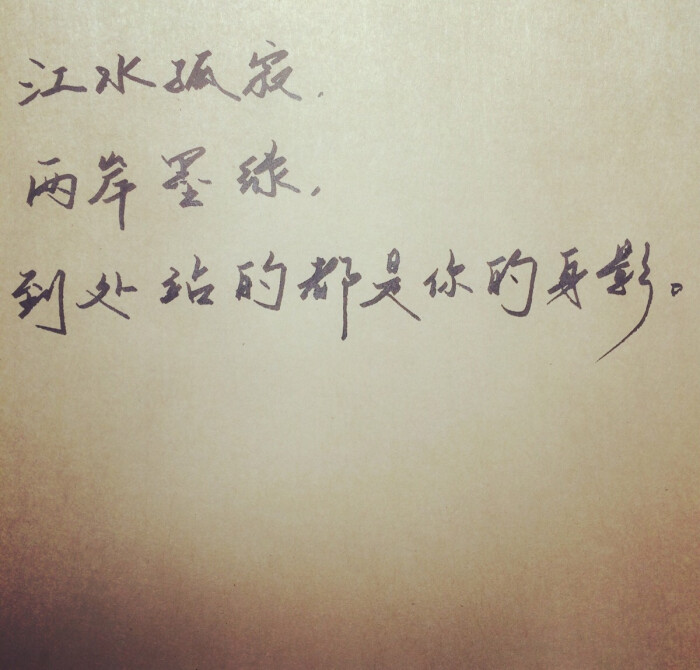 江水孤寂，
两岸墨绿，
到处站的都是你的身影。